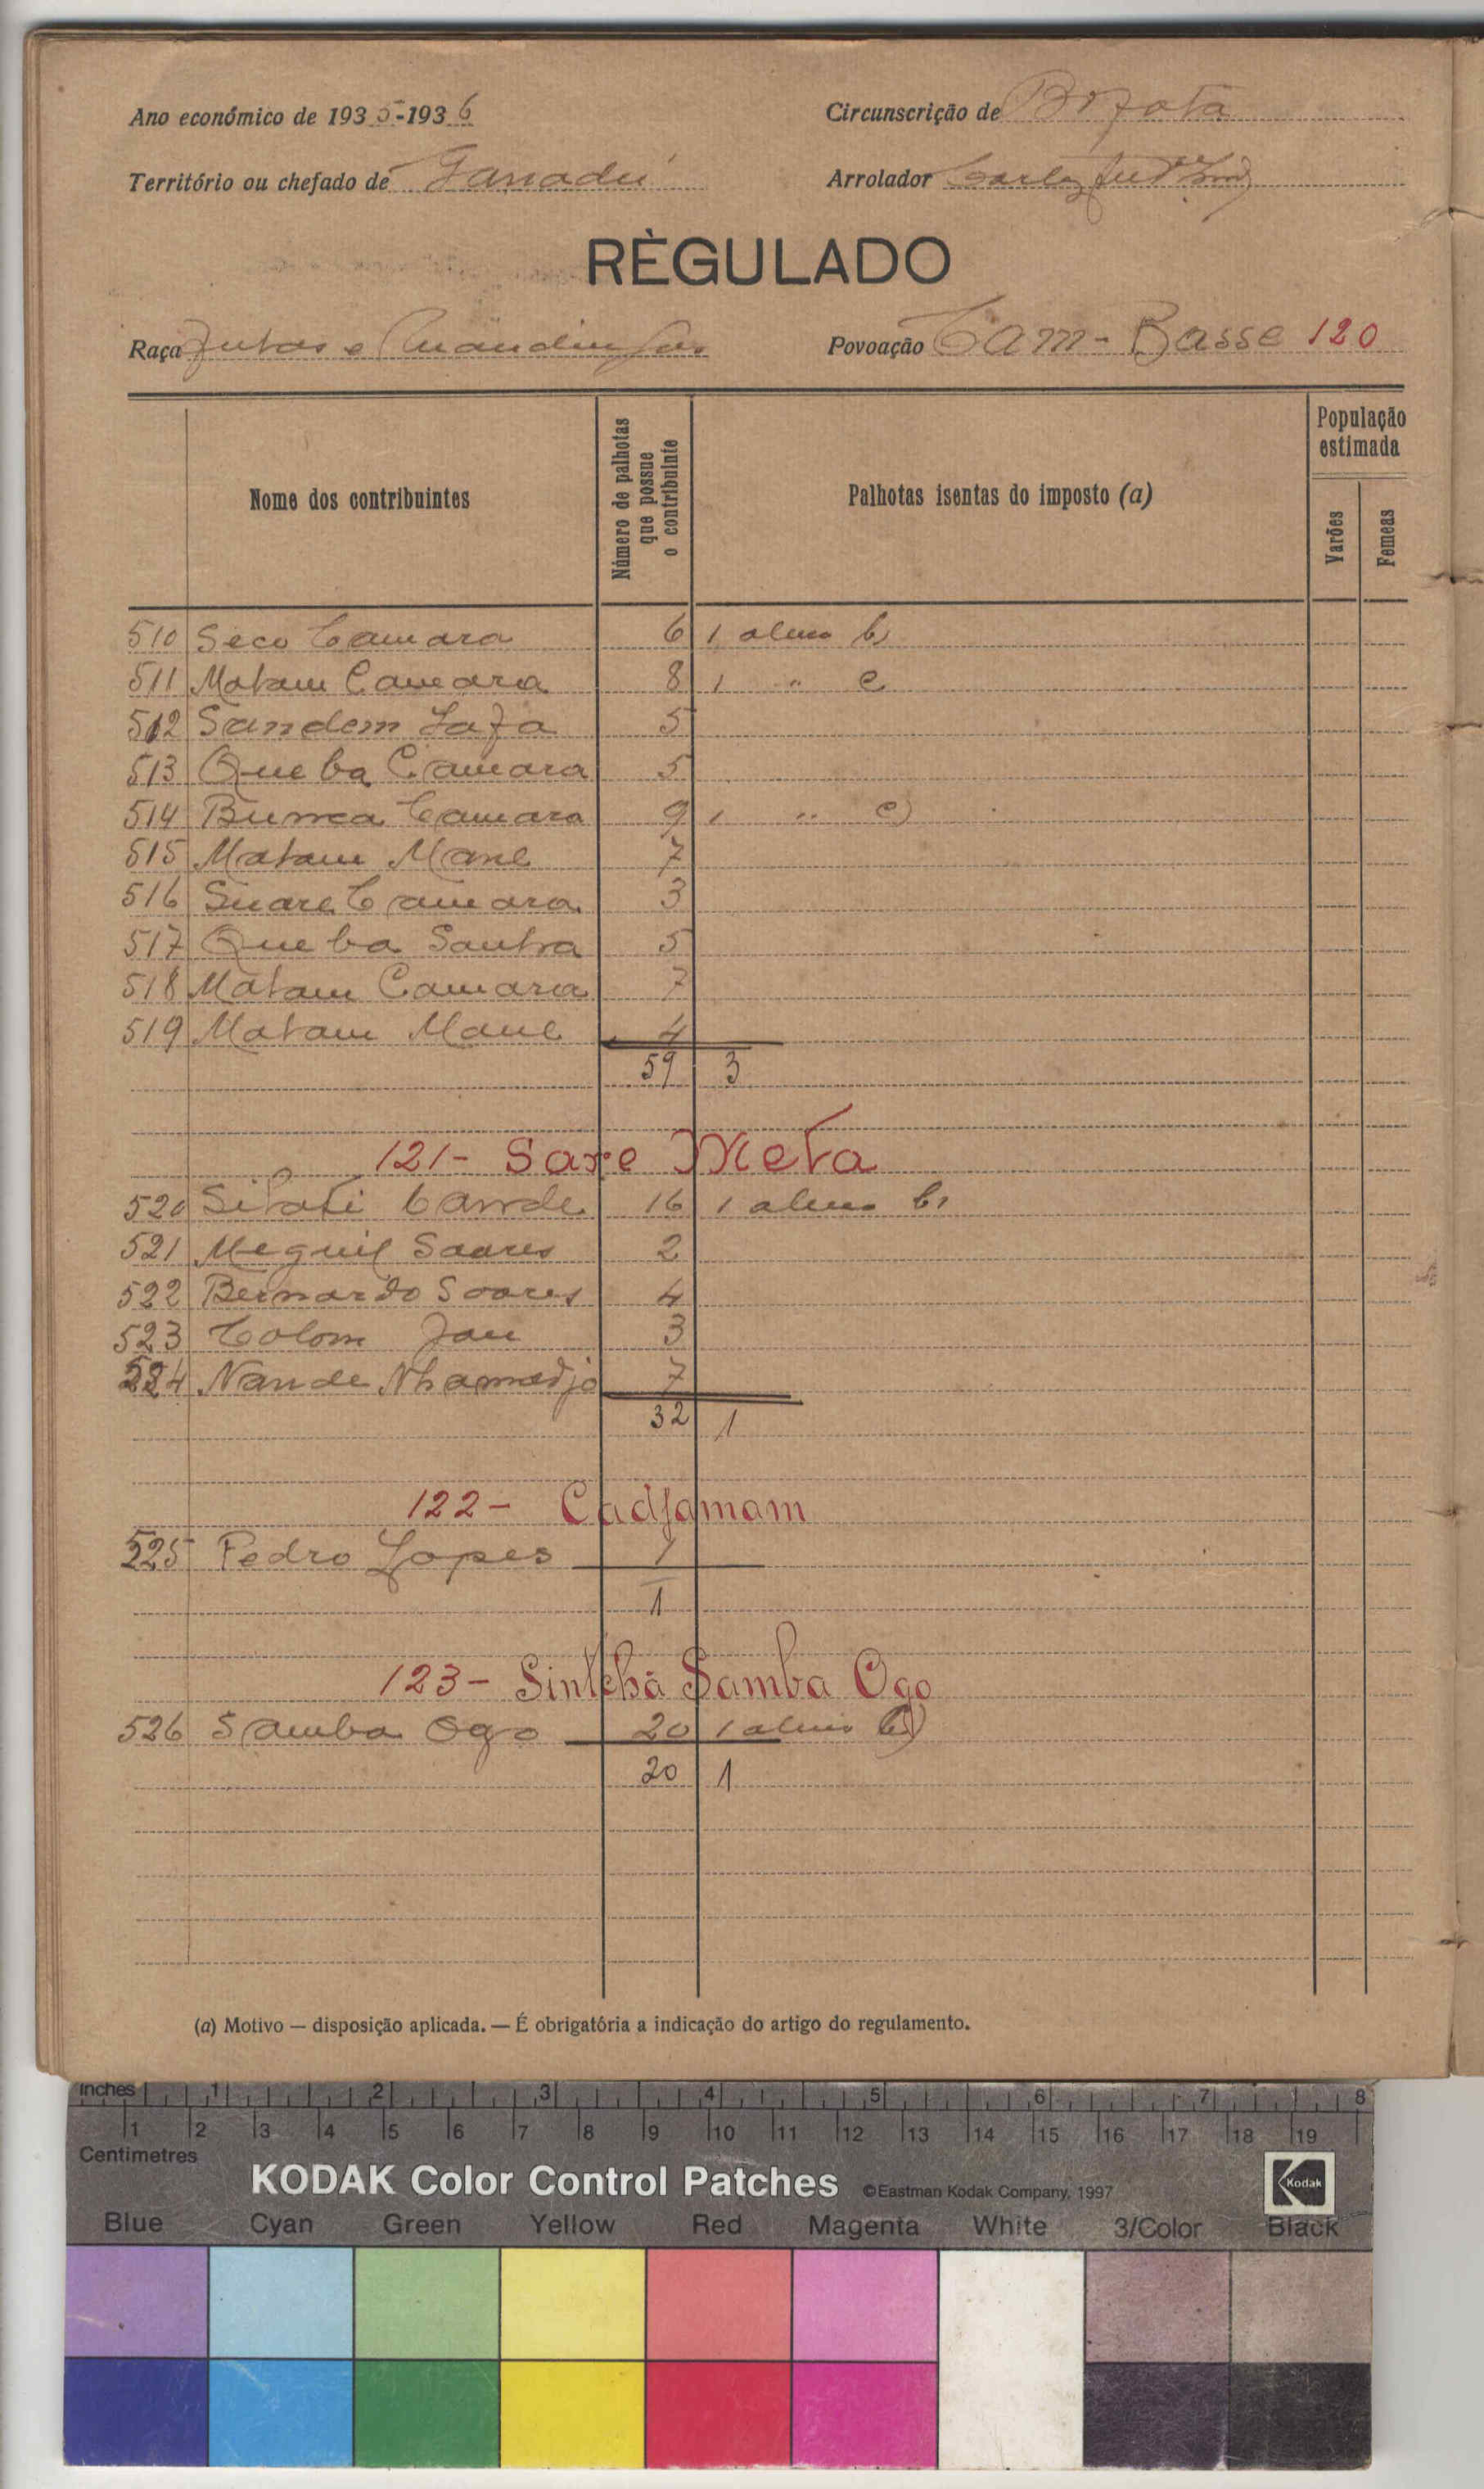 Ano económico de 1935-1936 Circunscrição de
Território ou chefado de Ganadú Arrolador Carlos
RÈGULADO
Raça Fulas e Mandingas Povoação Cam-Basse 120
Nome dos contribuintes
Número de palhotas que possue o contribuinte
Palhotas isentas do imposto (a)
População estimada
Varões
Femeas
510 Seco Camara 6 1 b)
511 Malam Camara 8 1 " c
512 Sandem 5
513 Queba Camara 5
514 Camara 9 1 " c)
515 Malam Mane 7
516 Suare Camara 3
517 Queba 5
518 Malam Camara 7
519 Malam Mane 4
59 3
121- Sare Meta
520 Cande 16 1 b)
521 Meguil Soares 2
522 Bernardo Soares 4
523 Colom Jau 3
524 Nande Nhamadjo 7
32 1
122- Cadjamam
525 Pedro Lopes 1
1
123- Sintchã Samba Ogo
526 Samba Ogo 20 1 b)
20 1
(a) Motivo — disposição aplicada. — É obrigatória a indicação do artigo do regulamento.
Inches 1 2 3 4 5 6 7 8
1 2 3 4 5 6 7 8 9 10 11 12 13 14 15 16 17 18 19
Centimetres
KODAK Color Control Patches ©Eastman Kodak Company, 1997 Kodak
Blue Cyan Green Yellow Red Magenta White 3/Color Black